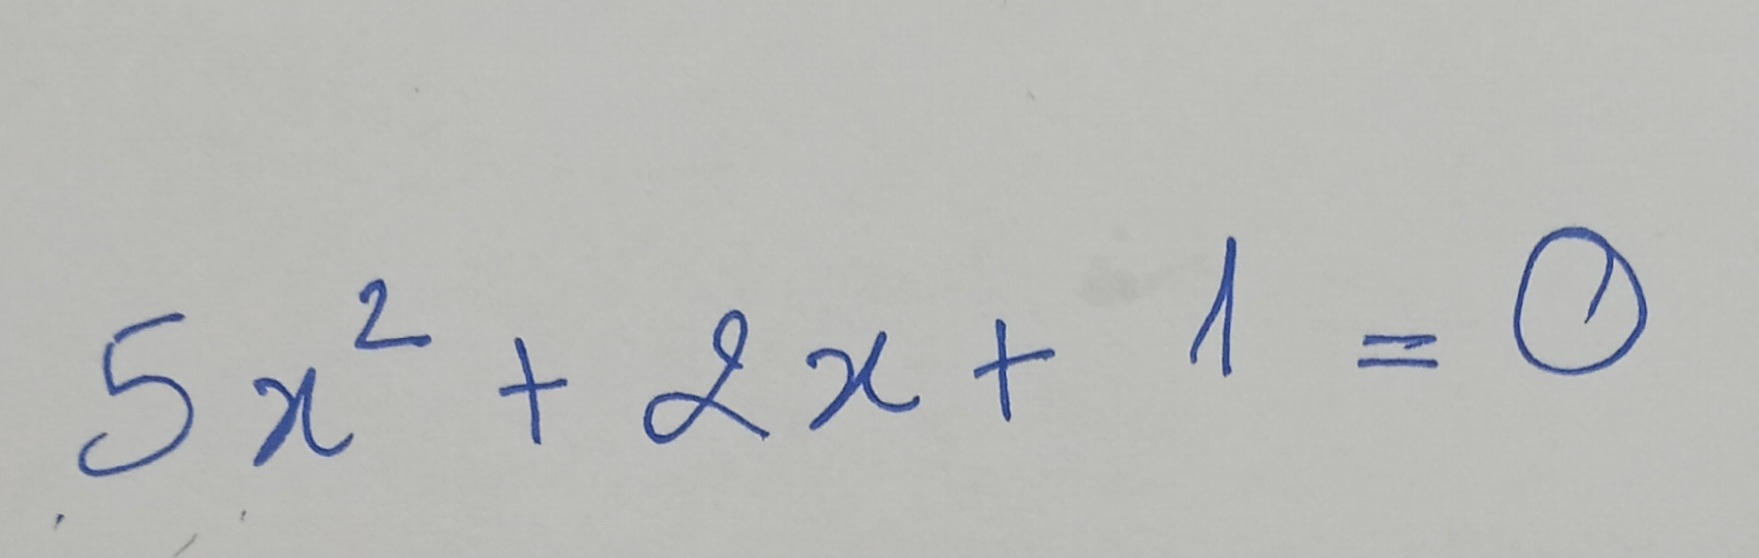 5x² + 2x + 1 = 0